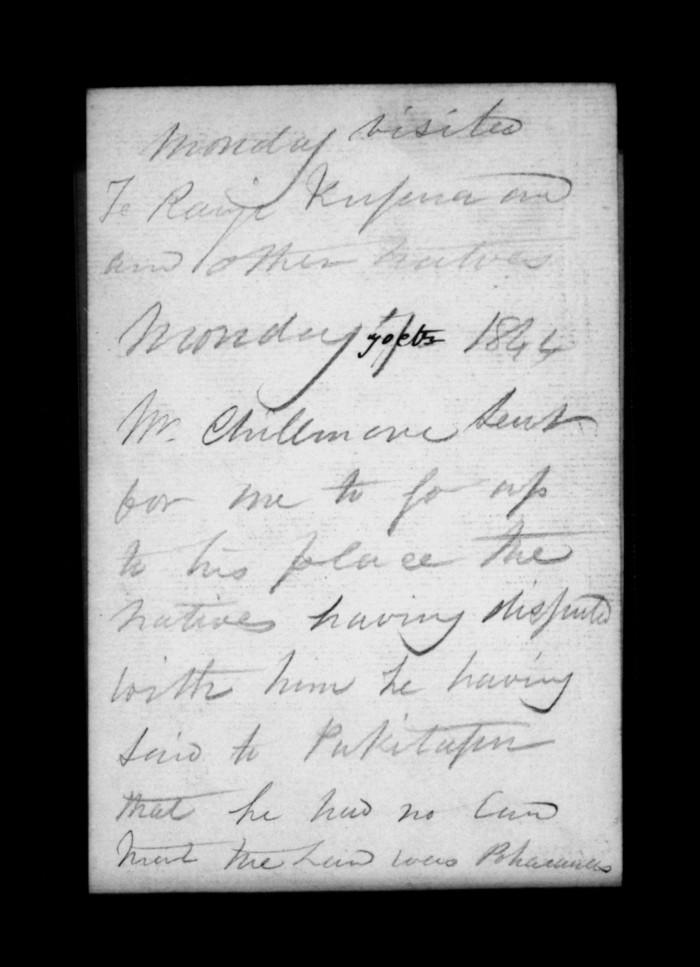 Monday visited
Te Rangi Kupua an
and other Natives
Monday 1844
Mr. Chillmore Sent
for me to go up
to his place the
natives having disputed
with him he having
said to Pukitapu
that he had no Lan
that the Land was